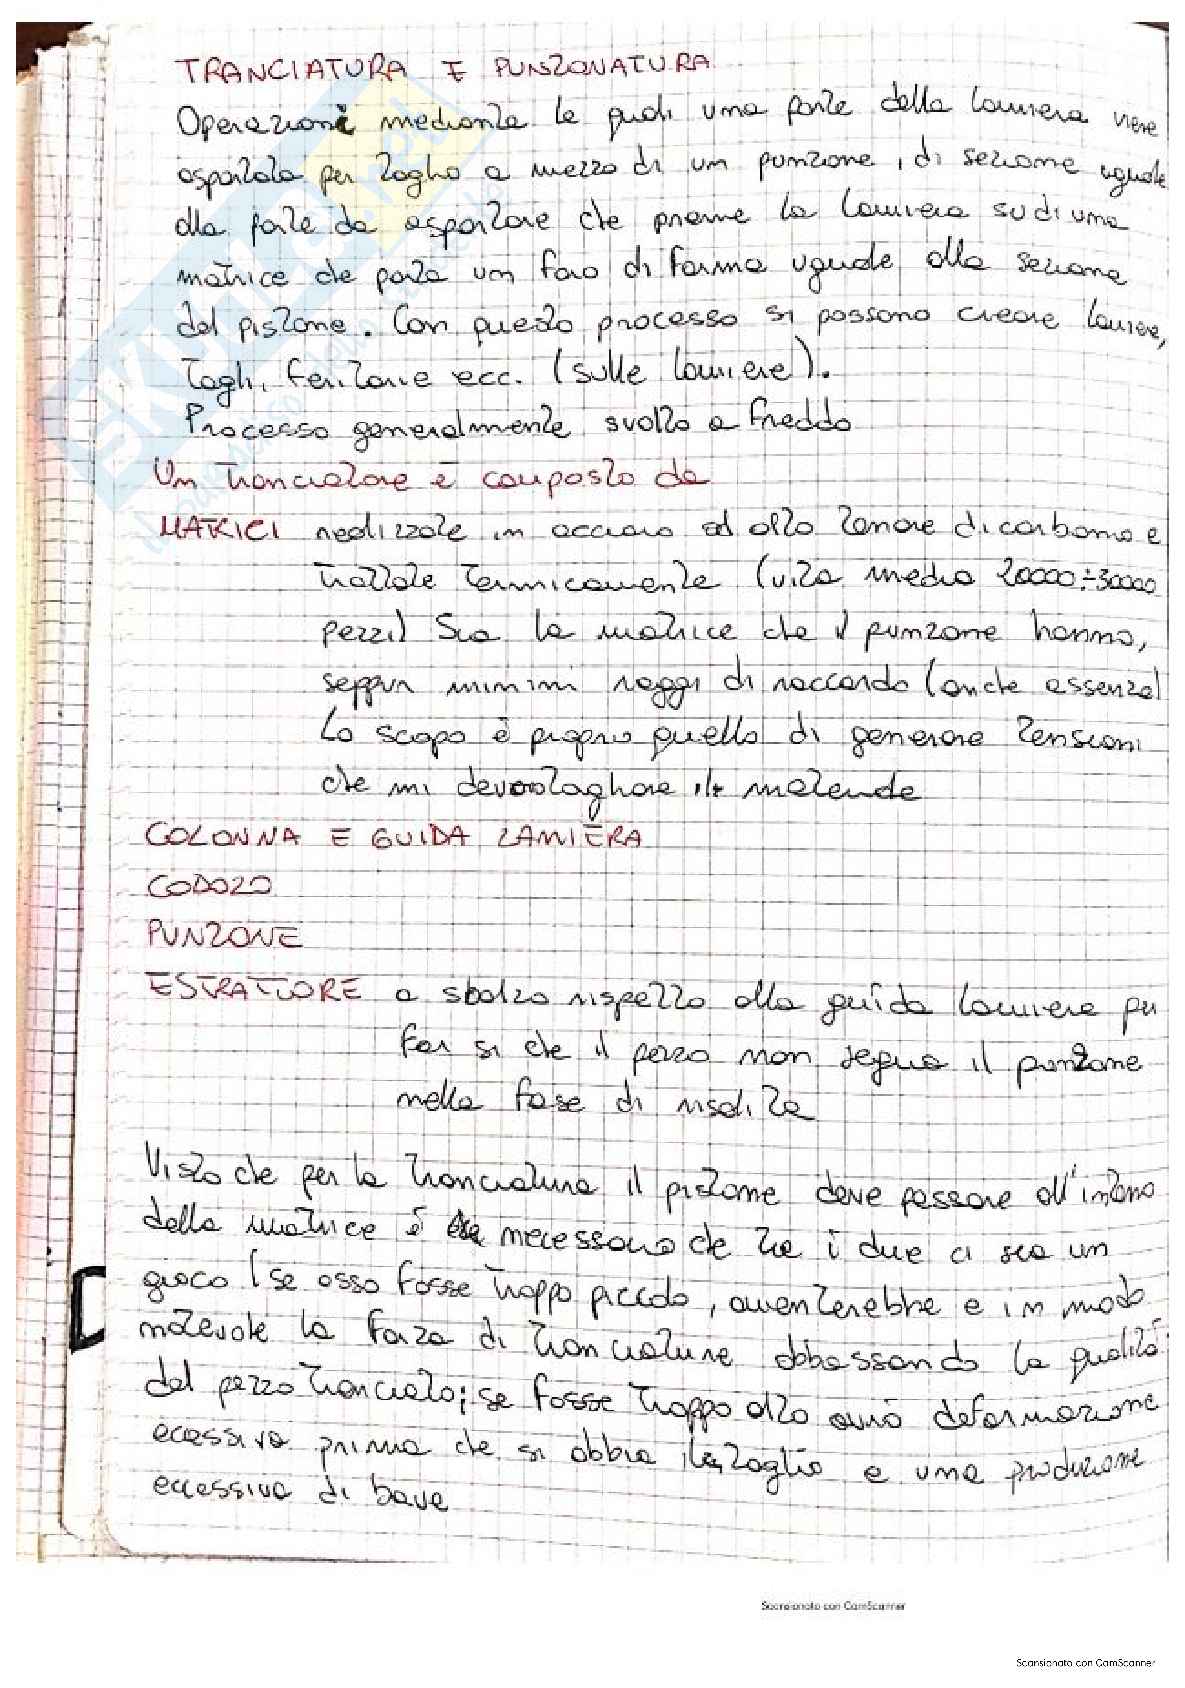 TRANCIATURA E PUNZONATURA
Operazioni mediante le quali una parte della lamiera viene
asportata per taglio a mezzo di un punzone, di sezione uguale
alla parte da asportare che preme la lamiera su di una
matrice che porta un foro di forma uguale alla sezione
del pistone. Con questo processo si possono creare lamiere,
Tagli, feritorie ecc. (sulle lamiere).
Processo generalmente svolto a freddo
Un tranciatore è composto da
MATRICI realizzate in acciaio ad alto tenore di carbonio e
trattate termicamente (vita media 20000÷30000
pezzi) Sia la matrice che il punzone hanno,
seppur minimi raggi di raccordo (anche assenza)
Lo scopo è proprio quello di generare tensioni
che mi devono tagliare il materiale
COLONNA E GUIDA LAMIERA
CODOLO
PUNZONE
ESTRATTORE a sbalzo rispetto alla guida lamiera per
far si che il pezzo non segua il punzone
nella fase di risalita
Visto che per la tranciatura il pistone deve passare all'interno
della matrice è necessario che tra i due ci sia un
gioco (se esso fosse troppo piccolo, aumenterebbe in modo
notevole la forza di tranciatura abbassando la qualità
del pezzo tranciato; se fosse troppo alto avrò deformazione
eccessiva prima che si abbia il taglio e una produzione
eccessiva di bave
Scansionato con CamScanner
Scansionato con CamScanner